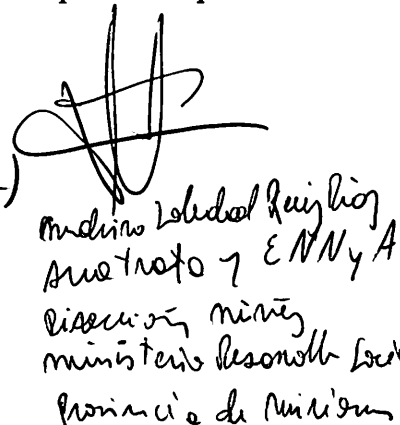 Soledad Ruiz Diaz
Trata y ENNyA
Dirección niñez
ministerio Desarrollo Soci
Provincia de misiones